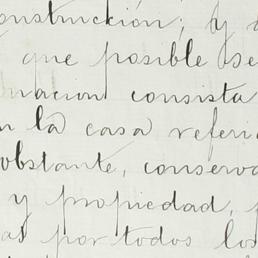 onstrucción, y
que posible se
nacion consista
la casa referi
obstante, conserva
y propiedad,
as por todos los